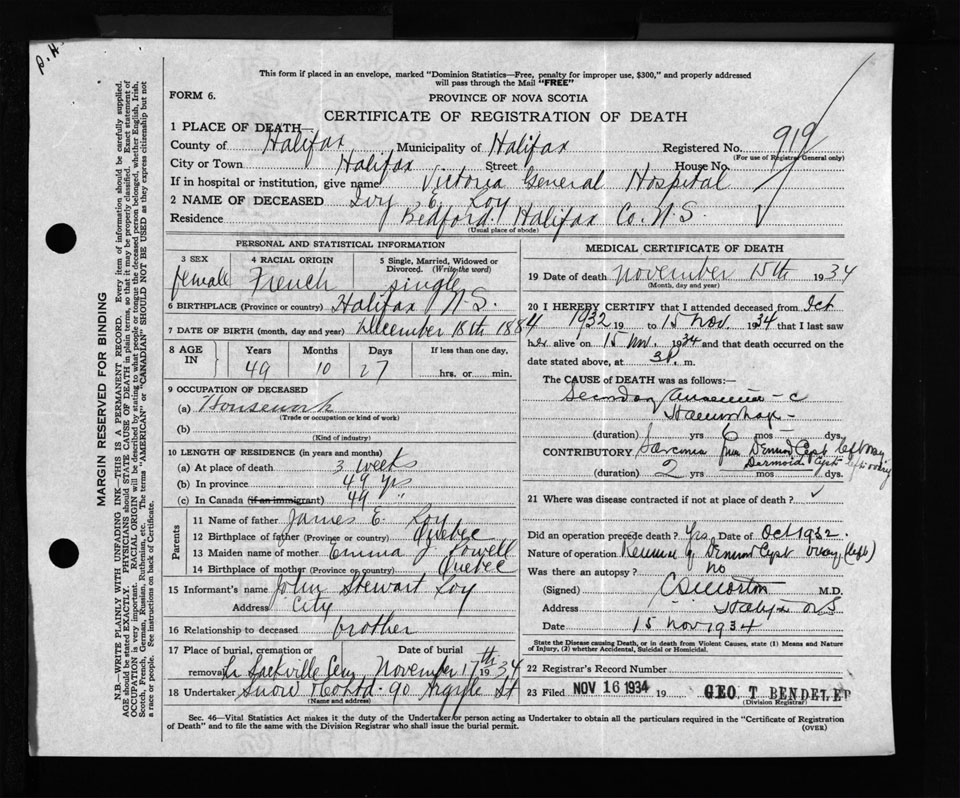 P. H.
This form if placed in an envelope, marked "Dominion Statistics—Free, penalty for improper use, $300," and properly addressed
will pass through the Mail "FREE"
FORM 6.
PROVINCE OF NOVA SCOTIA
CERTIFICATE OF REGISTRATION OF DEATH
1 PLACE OF DEATH—
County of Halifax Municipality of Halifax Registered No. 919
(For use of Registrar General only)
City or Town Halifax Street House No.
If in hospital or institution, give name Victoria General Hospital
2 NAME OF DECEASED Ivy E. Loy
Residence Bedford. Halifax Co. N.S.
(Usual place of abode)
PERSONAL AND STATISTICAL INFORMATION
3 SEX 4 RACIAL ORIGIN 5 Single, Married, Widowed or
Divorced. (Write the word)
female French single
6 BIRTHPLACE (Province or country) Halifax N.S.
7 DATE OF BIRTH (month, day and year) December 18th 1884
8 AGE IN Years Months Days If less than one day,
49 10 27 hrs. or min.
9 OCCUPATION OF DECEASED
(a) Housework
(Trade or occupation or kind of work)
(b)
(Kind of industry)
10 LENGTH OF RESIDENCE (in years and months)
(a) At place of death 3 weeks
(b) In province 49 yrs
(c) In Canada (if an immigrant) 49 "
Parents
11 Name of father James E. Loy
12 Birthplace of father (Province or country) Quebec
13 Maiden name of mother Emma J Lowell
14 Birthplace of mother (Province or country) Quebec
15 Informant's name John Stewart Loy
Address City
16 Relationship to deceased brother
17 Place of burial, cremation or Date of burial
removal Sackville Cem November 17th 1934
18 Undertaker Snow & Co Ltd. 90 Argyle St
(Name and address)
MEDICAL CERTIFICATE OF DEATH
19 Date of death November 15th 1934
(Month, day and year)
20 I HEREBY CERTIFY that I attended deceased from Oct
1932 19 to 15 Nov. 1934 that I last saw
her alive on 15 Nov. 1934 and that death occurred on the
date stated above, at 3 P. m.
The CAUSE of DEATH was as follows:—
Secondary Anaemia - c
Haemorrhage -
(duration) yrs mos dys.
CONTRIBUTORY Sarcoma from Dermoid Cyst left ovary
Dermoid Cyst left ovary
(duration) 2 yrs mos dys.
21 Where was disease contracted if not at place of death?
Did an operation precede death? Yes Date of Oct 1932.
Nature of operation Removal of Dermoid Cyst ovary (left)
Was there an autopsy? no
(Signed) M.D.
Address Halifax N S
Date 15 Nov 1934
State the Disease causing Death, or in death from Violent Causes, state (1) Means and Nature
of Injury, (2) whether Accidental, Suicidal or Homicidal.
22 Registrar's Record Number
23 Filed NOV 16 1934 19 GEO. T BENDELER
(Division Registrar)
Sec. 46—Vital Statistics Act makes it the duty of the Undertaker or person acting as Undertaker to obtain all the particulars required in the "Certificate of Registration
of Death" and to file the same with the Division Registrar who shall issue the burial permit.
(OVER)
MARGIN RESERVED FOR BINDING
N.B.—WRITE PLAINLY WITH UNFADING INK—THIS IS A PERMANENT RECORD. Every item of information should be carefully supplied.
AGE should be stated EXACTLY. PHYSICIANS should STATE CAUSE OF DEATH in plain terms, so that it may be properly classified. Exact statement of
OCCUPATION is very important. RACIAL ORIGIN will be described by stating to what people or tongue the deceased person belonged, whether English, Irish,
Scotch, French, German, Russian, Ruthenian, etc. The terms "AMERICAN" or "CANADIAN" SHOULD NOT BE USED as they express citizenship but not
a race or people. See instructions on back of Certificate.